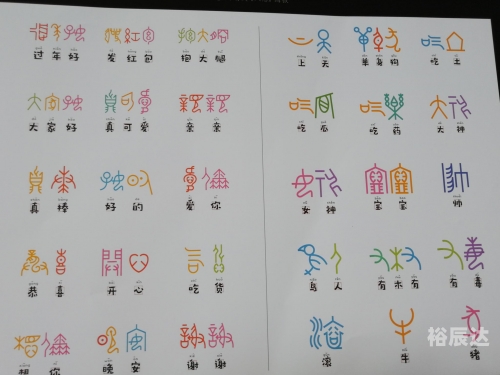 过年好 发红包 抱大腿
大家好 真可爱 亲亲
真棒 好的 爱你
恭喜 开心 吃货
想你 晚安 谢谢
上天 单身狗 吃土
吃瓜 吃药 大神
女神 宝宝 帅
鸟人 有木有 有毒
滚 牛 猪
裕辰达